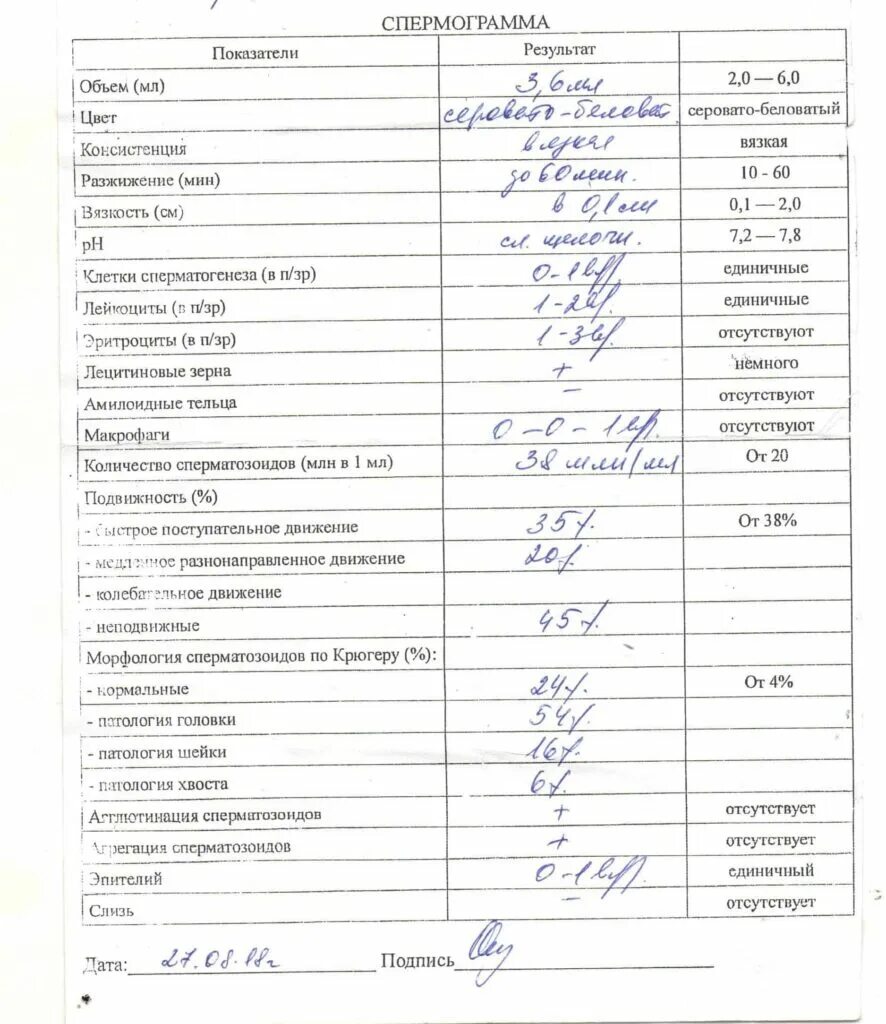 СПЕРМОГРАММА
Показатели Результат
Объем (мл) 3,6 мл 2,0 — 6,0
Цвет серовато-беловат. серовато-беловатый
Консистенция вязкая вязкая
Разжижение (мин) до 60 мин. 10 - 60
Вязкость (см) в 0,1 см 0,1 — 2,0
pH сл. щелочн. 7,2 — 7,8
Клетки сперматогенеза (в п/зр) 0-1 единичные
Лейкоциты (в п/зр) 1-2 единичные
Эритроциты (в п/зр) 1-3 отсутствуют
Лецитиновые зерна + немного
Амилоидные тельца – отсутствуют
Макрофаги 0-0-1 отсутствуют
Количество сперматозоидов (млн в 1 мл) 38 млн/мл От 20
Подвижность (%)
- быстрое поступательное движение 35% От 38%
- медленное разнонаправленное движение 20%
- колебательное движение
- неподвижные 45%
Морфология сперматозоидов по Крюгеру (%):
- нормальные 24% От 4%
- патология головки 54%
- патология шейки 16%
- патология хвоста 6%
Агглютинация сперматозоидов + отсутствует
Агрегация сперматозоидов + отсутствует
Эпителий 0-1 единичный
Слизь – отсутствует
Дата: 27.08.18г Подпись